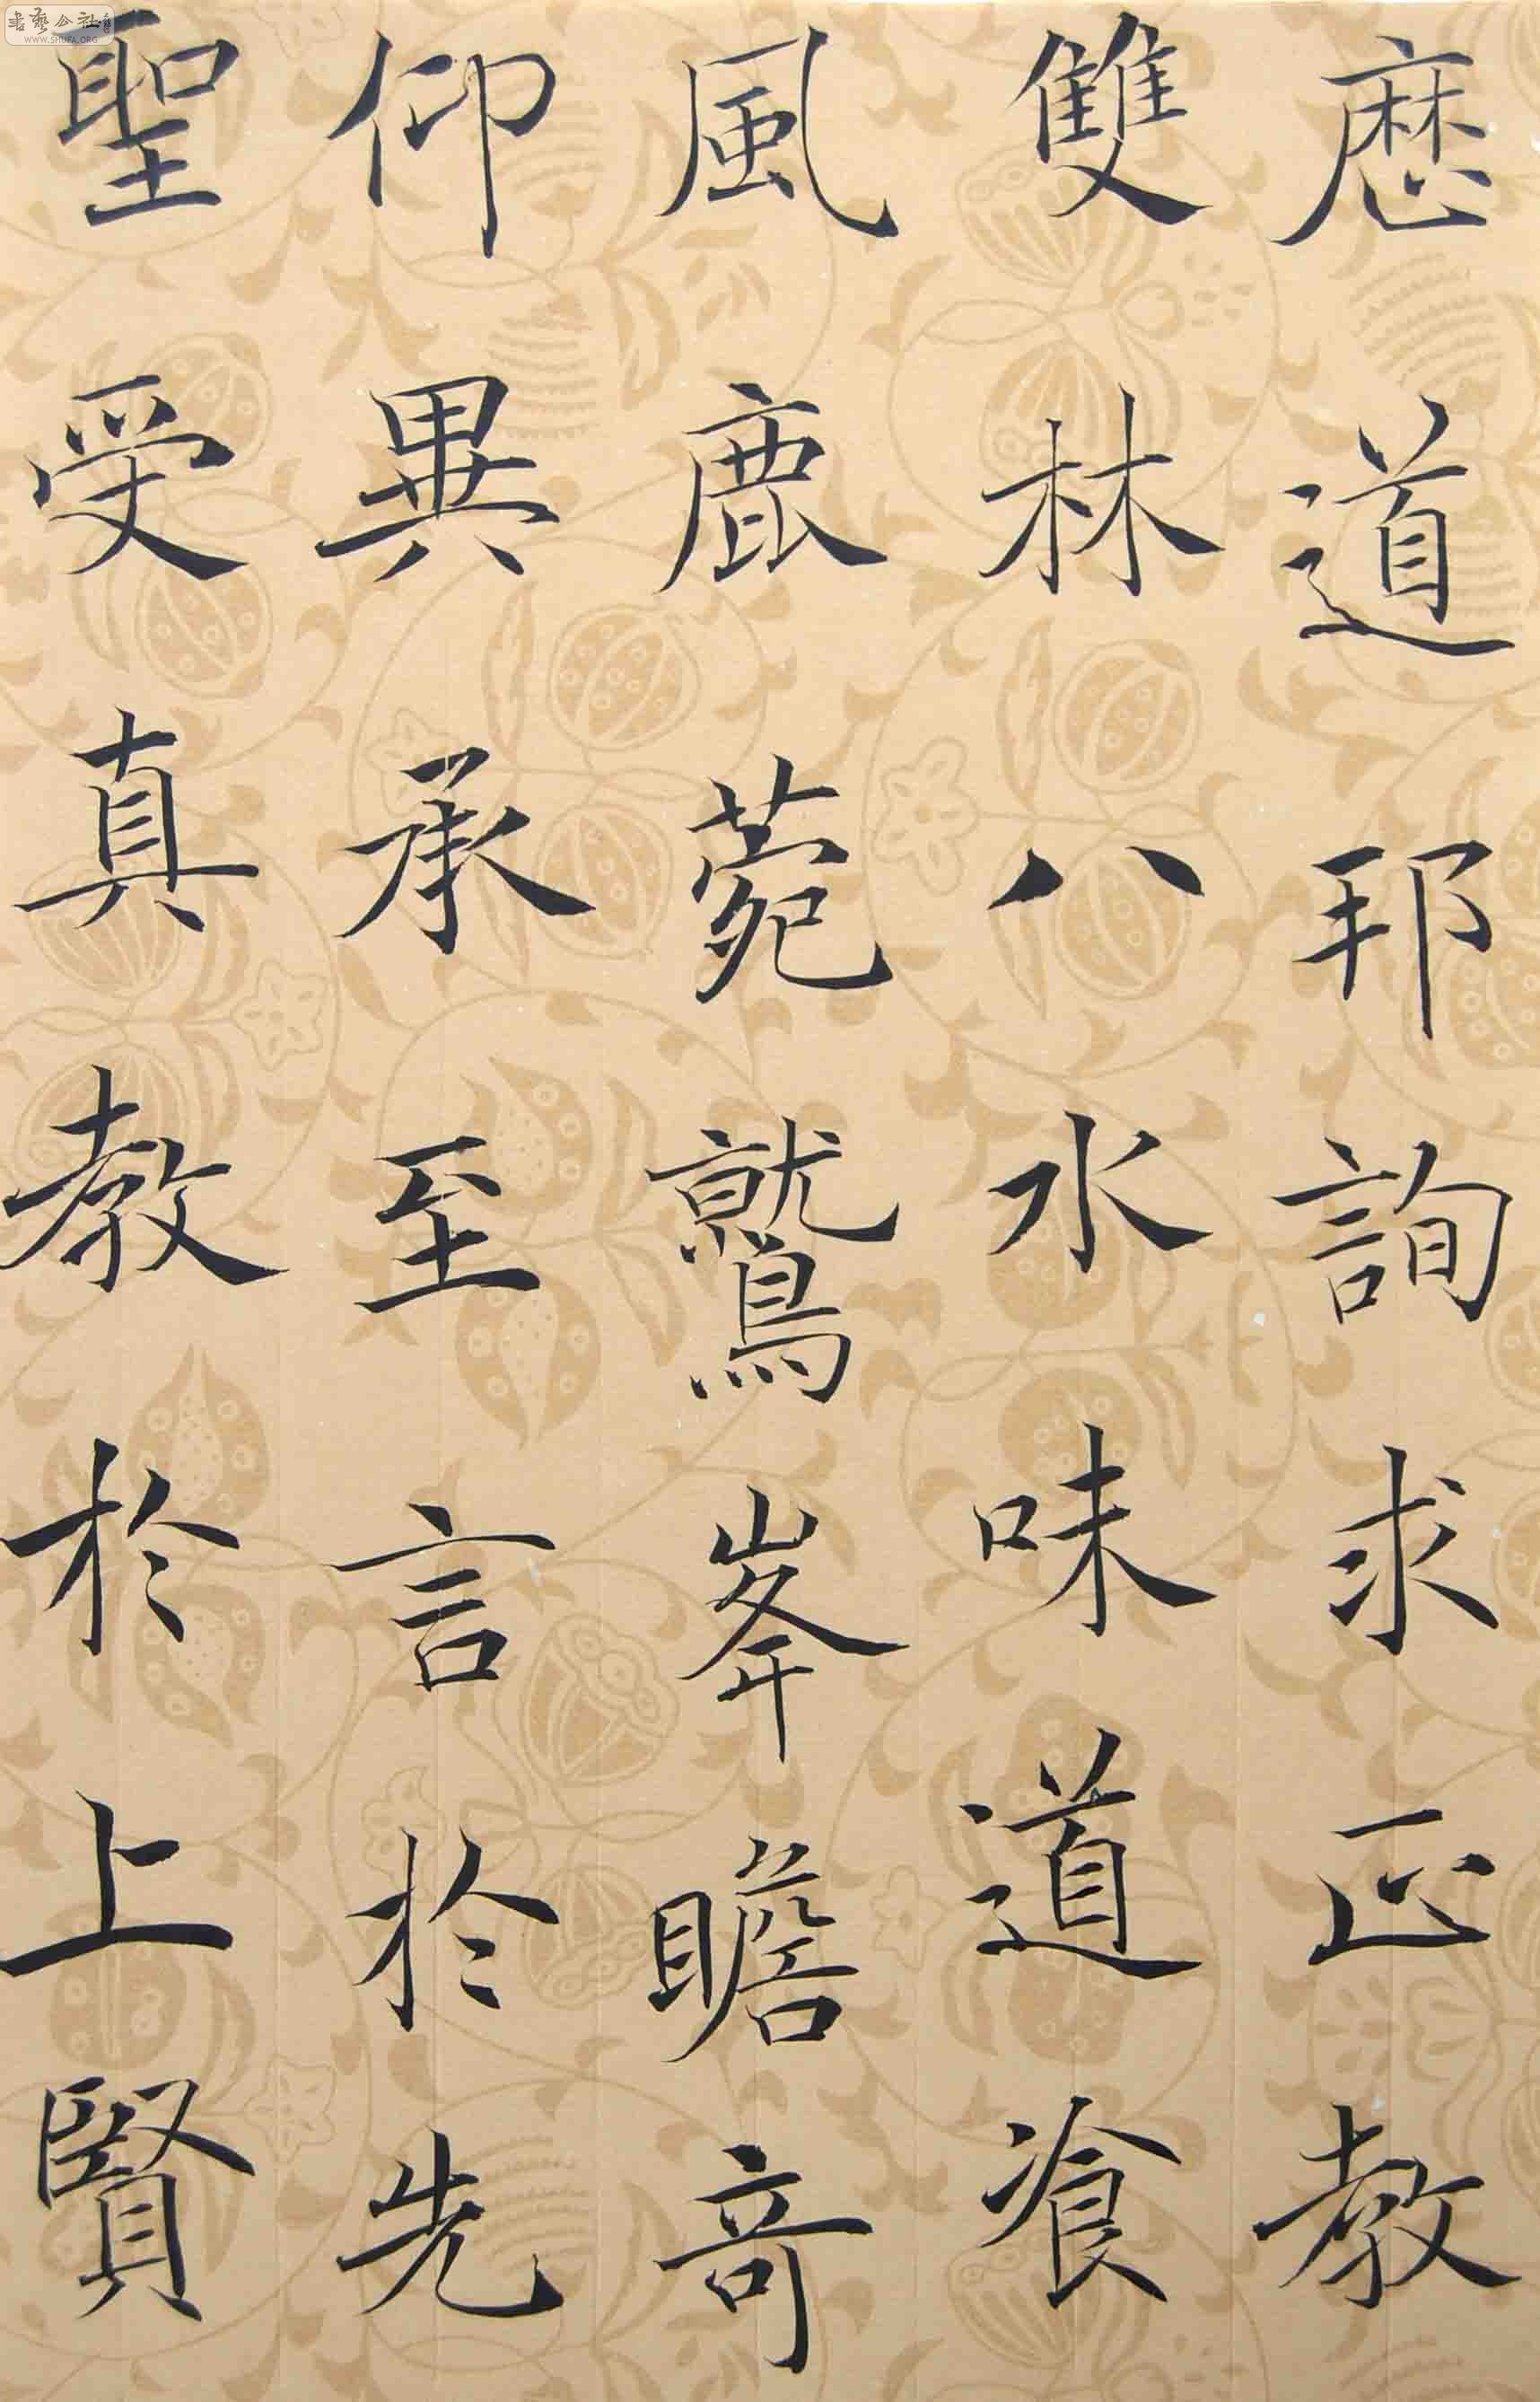 歷道邦詢求正教
雙林八水味道飡
風鹿菀鷲峯瞻奇
仰異承至言於先
聖受真教於上賢
書藝公社
WWW.SHUFA.ORG